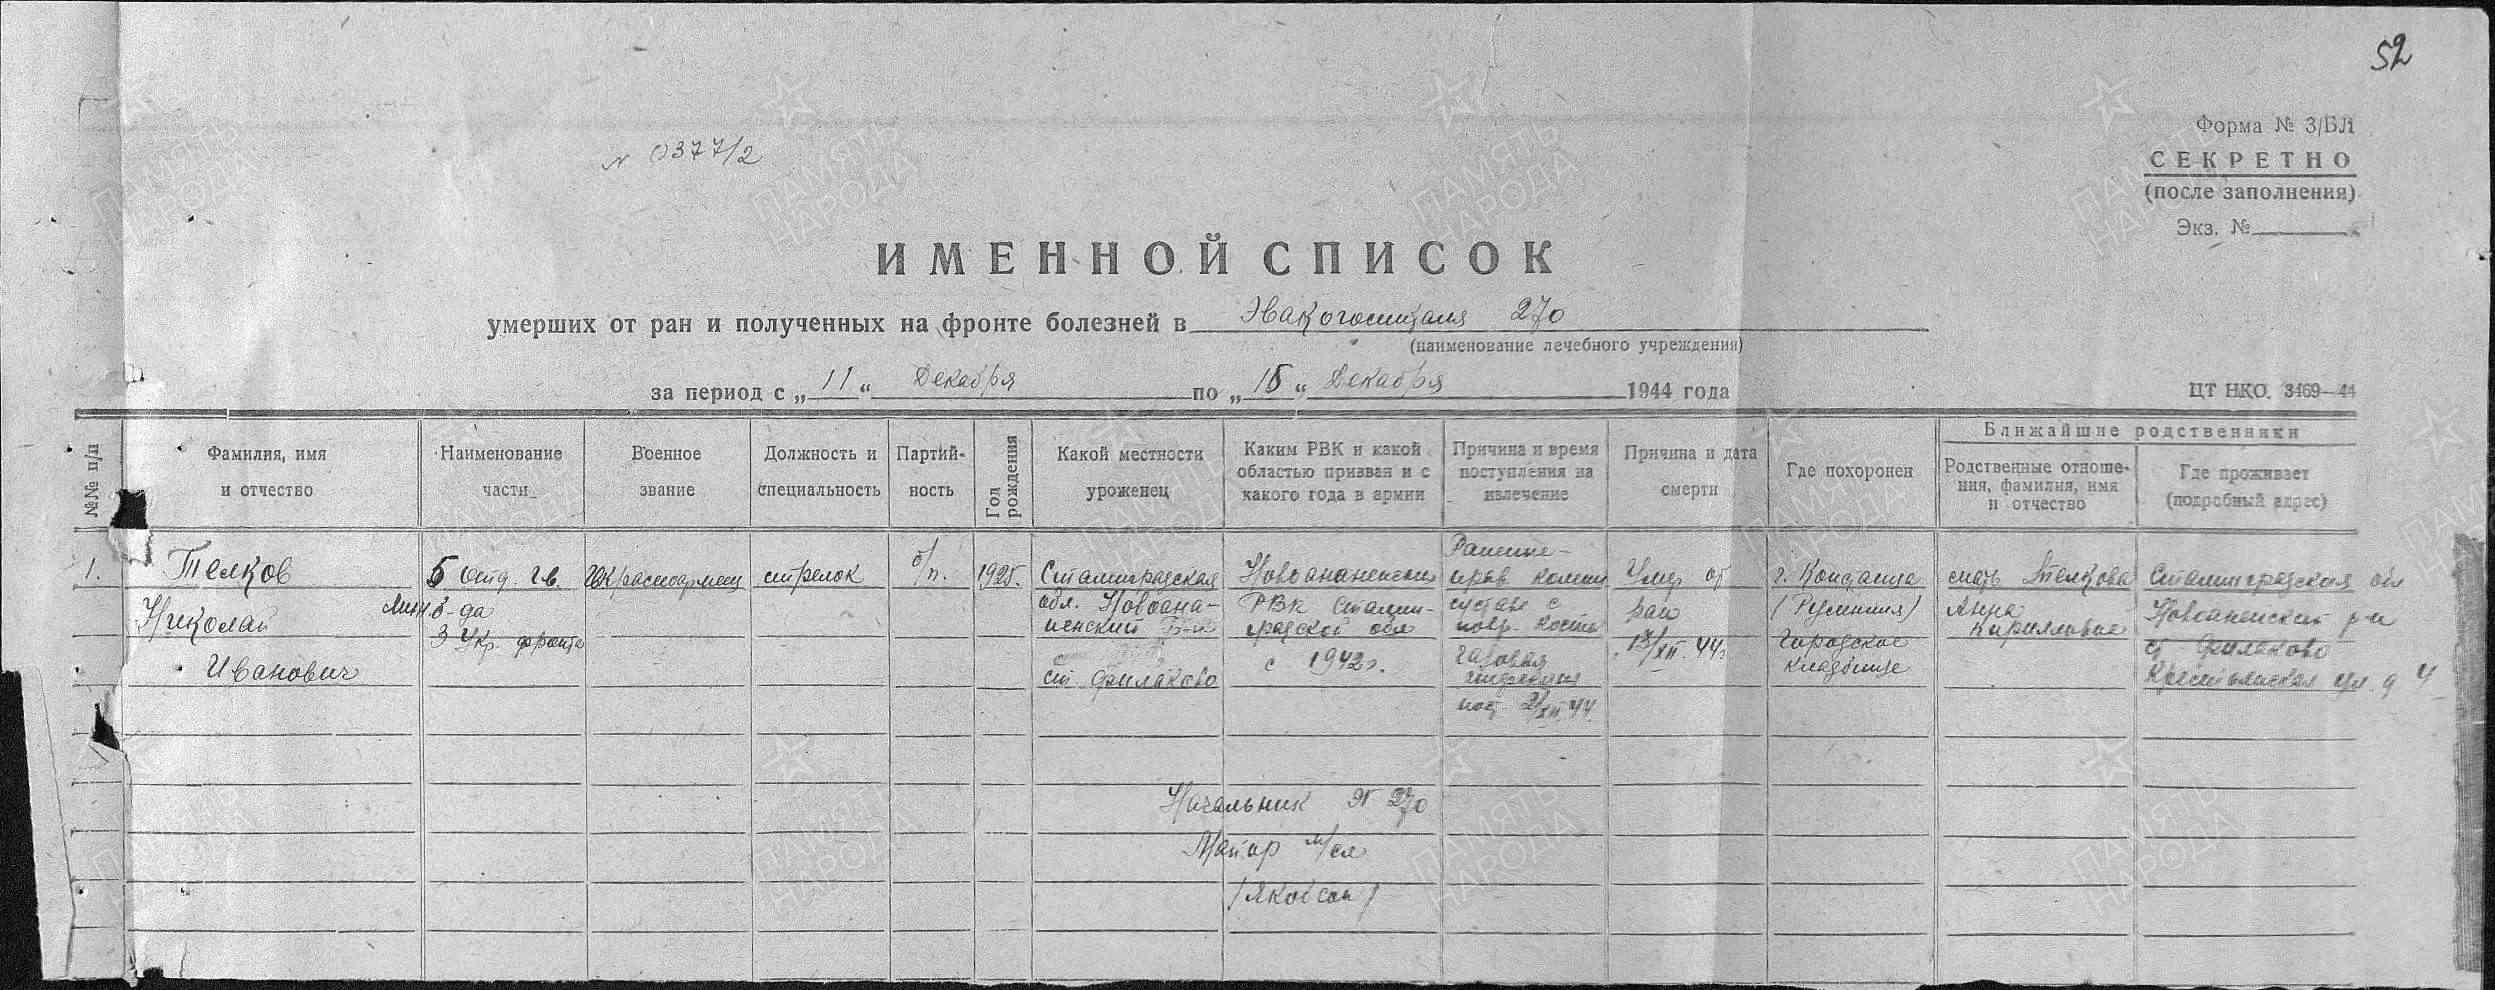 52
Форма № 3/БЛ
СЕКРЕТНО
(после заполнения)
Экз. №
№ 0377/2
ИМЕННОЙ СПИСОК
умерших от ран и полученных на фронте болезней в Эвакогоспиталя 270
(наименование лечебного учреждения)
за период с „ 11 “ Декабря по „ 15 “ Декабря 1944 года
ЦТ НКО. 3469—44
№№ п/п
Фамилия, имя
и отчество
Наименование
части
Военное
звание
Должность и
специальность
Партий-
ность
Год
рождения
Какой местности
уроженец
Каким РВК и какой
областью призван и с
какого года в армии
Причина и время
поступления на
излечение
Причина и дата
смерти
Где похоронен
Ближайшие родственники
Родственные отноше-
ния, фамилия, имя
и отчество
Где проживает
(подробный адрес)
1.
Телков
Николай
Иванович
5 отд. гв.
б-да
3 Укр. фронта
красноармеец
стрелок
б/п.
1925.
Сталинградская
обл. Новоана-
ненский
ст Филаково
Новоаненским
РВК Сталин-
градской обл
с 1942г.
Ранение
прав. колен
сустава с
повр. кости
газовая
инфекция
пост.
Умер от
ран
/XII. 44г
г. Констанца
(Румыния)
Городское
кладбище
мать Телкова
Анна
Кирилловна
Сталинградская обл
Новоаненский р-н
ст Филаково
Крестьянская ул. д 4
Начальник ЭГ 270
Майор м/сл
/Якобсон/
ПАМЯТЬ
НАРОДА